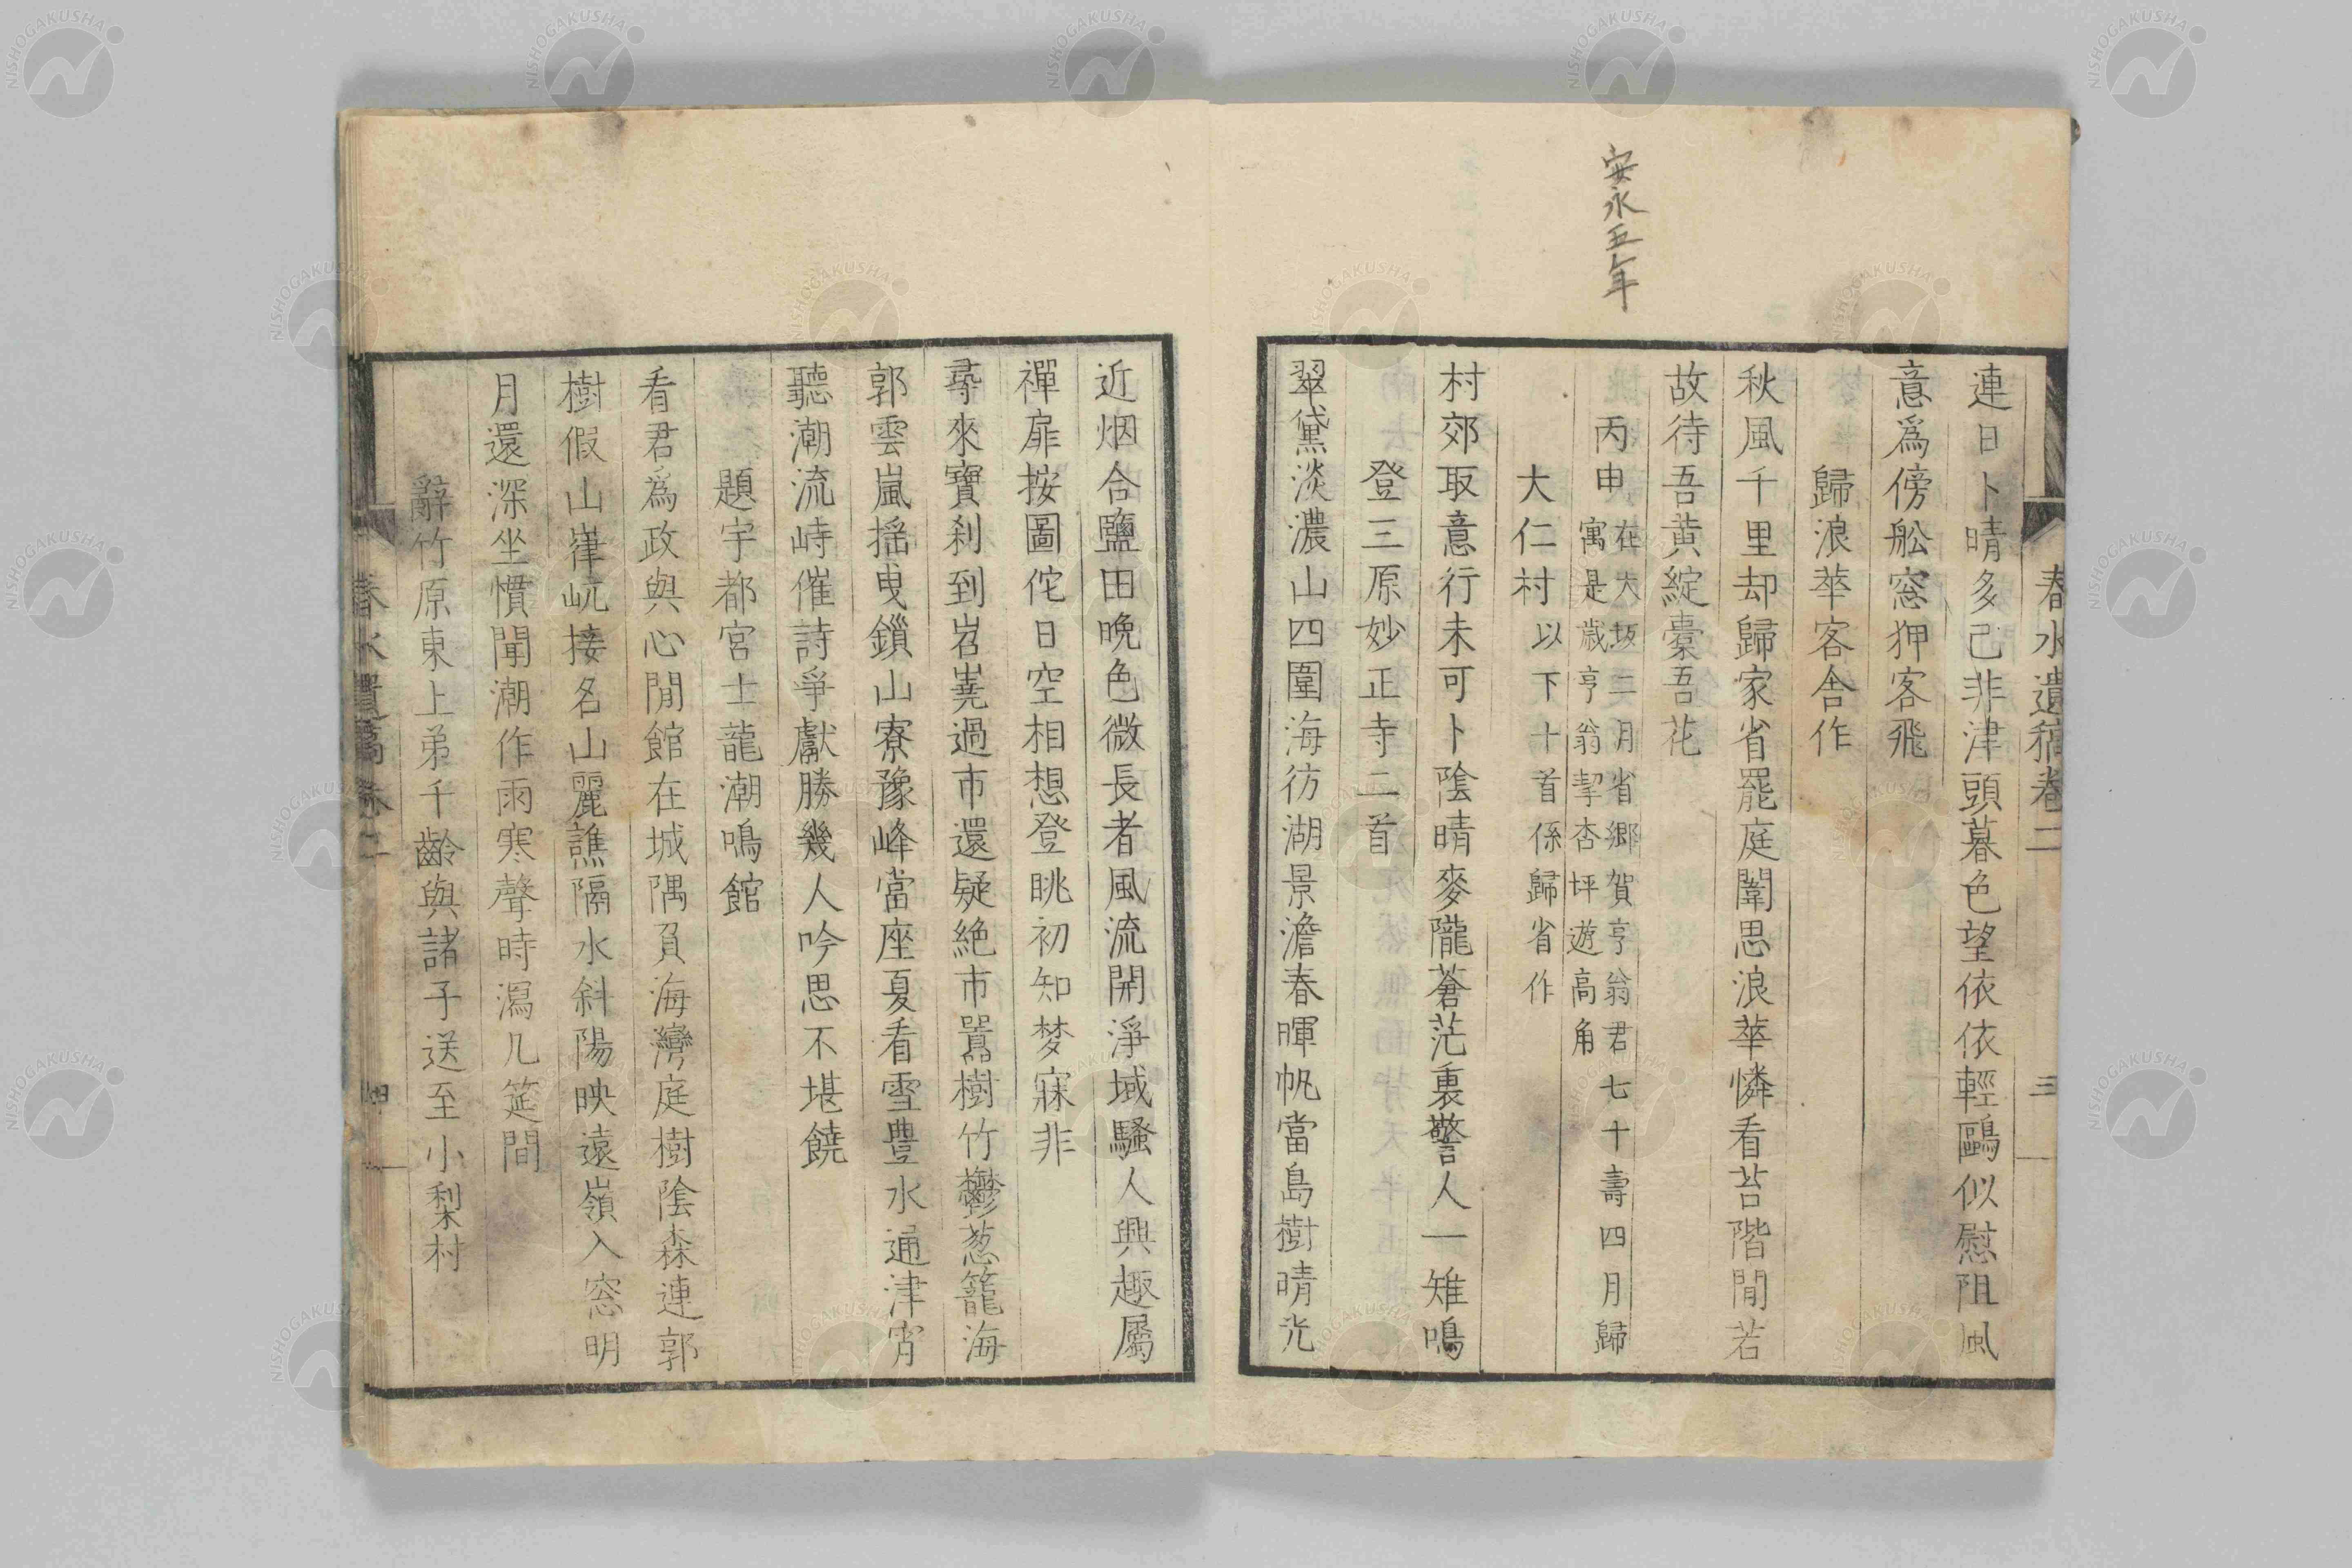 安永五年
春水遺稿卷二
三
連日卜晴多已非津頭暮色望依依輕鷗似慰阻風
意爲傍舩窓狎客飛
歸浪華客舍作
秋風千里却歸家省罷庭闈思浪華憐看苔階閒若
故待吾黄綻橐吾花
丙申在大坂二月省郷賀亨翁君七十壽四月歸
寓是歳亨翁挈杏坪遊高角
大仁村以下十首係歸省作
村郊取意行未可卜陰晴麥隴蒼茫裏警人一雉鳴
登三原妙正寺二首
翠黛淡濃山四圍海彷湖景澹春暉帆當島樹晴光
近烟合鹽田晩色微長者風流開淨域騷人興趣屬
禪扉按圖侘日空相想登眺初知梦寐非
尋來寶刹到岧嶤過市還疑絶市囂樹竹鬱葱籠海
郭雲嵐揺曳鎖山寮豫峰當座夏看雪豊水通津宵
聽潮流峙催詩爭獻勝幾人吟思不堪饒
題宇都宮士龍潮鳴館
看君爲政與心閒館在城隅負海灣庭樹陰森連郭
樹假山嵂屼接名山麗譙隔水斜陽映遠嶺入窓明
月還深坐慣聞潮作雨寒聲時瀉几筵間
辭竹原東上弟千齡與諸子送至小梨村
春水遺稿卷二
四